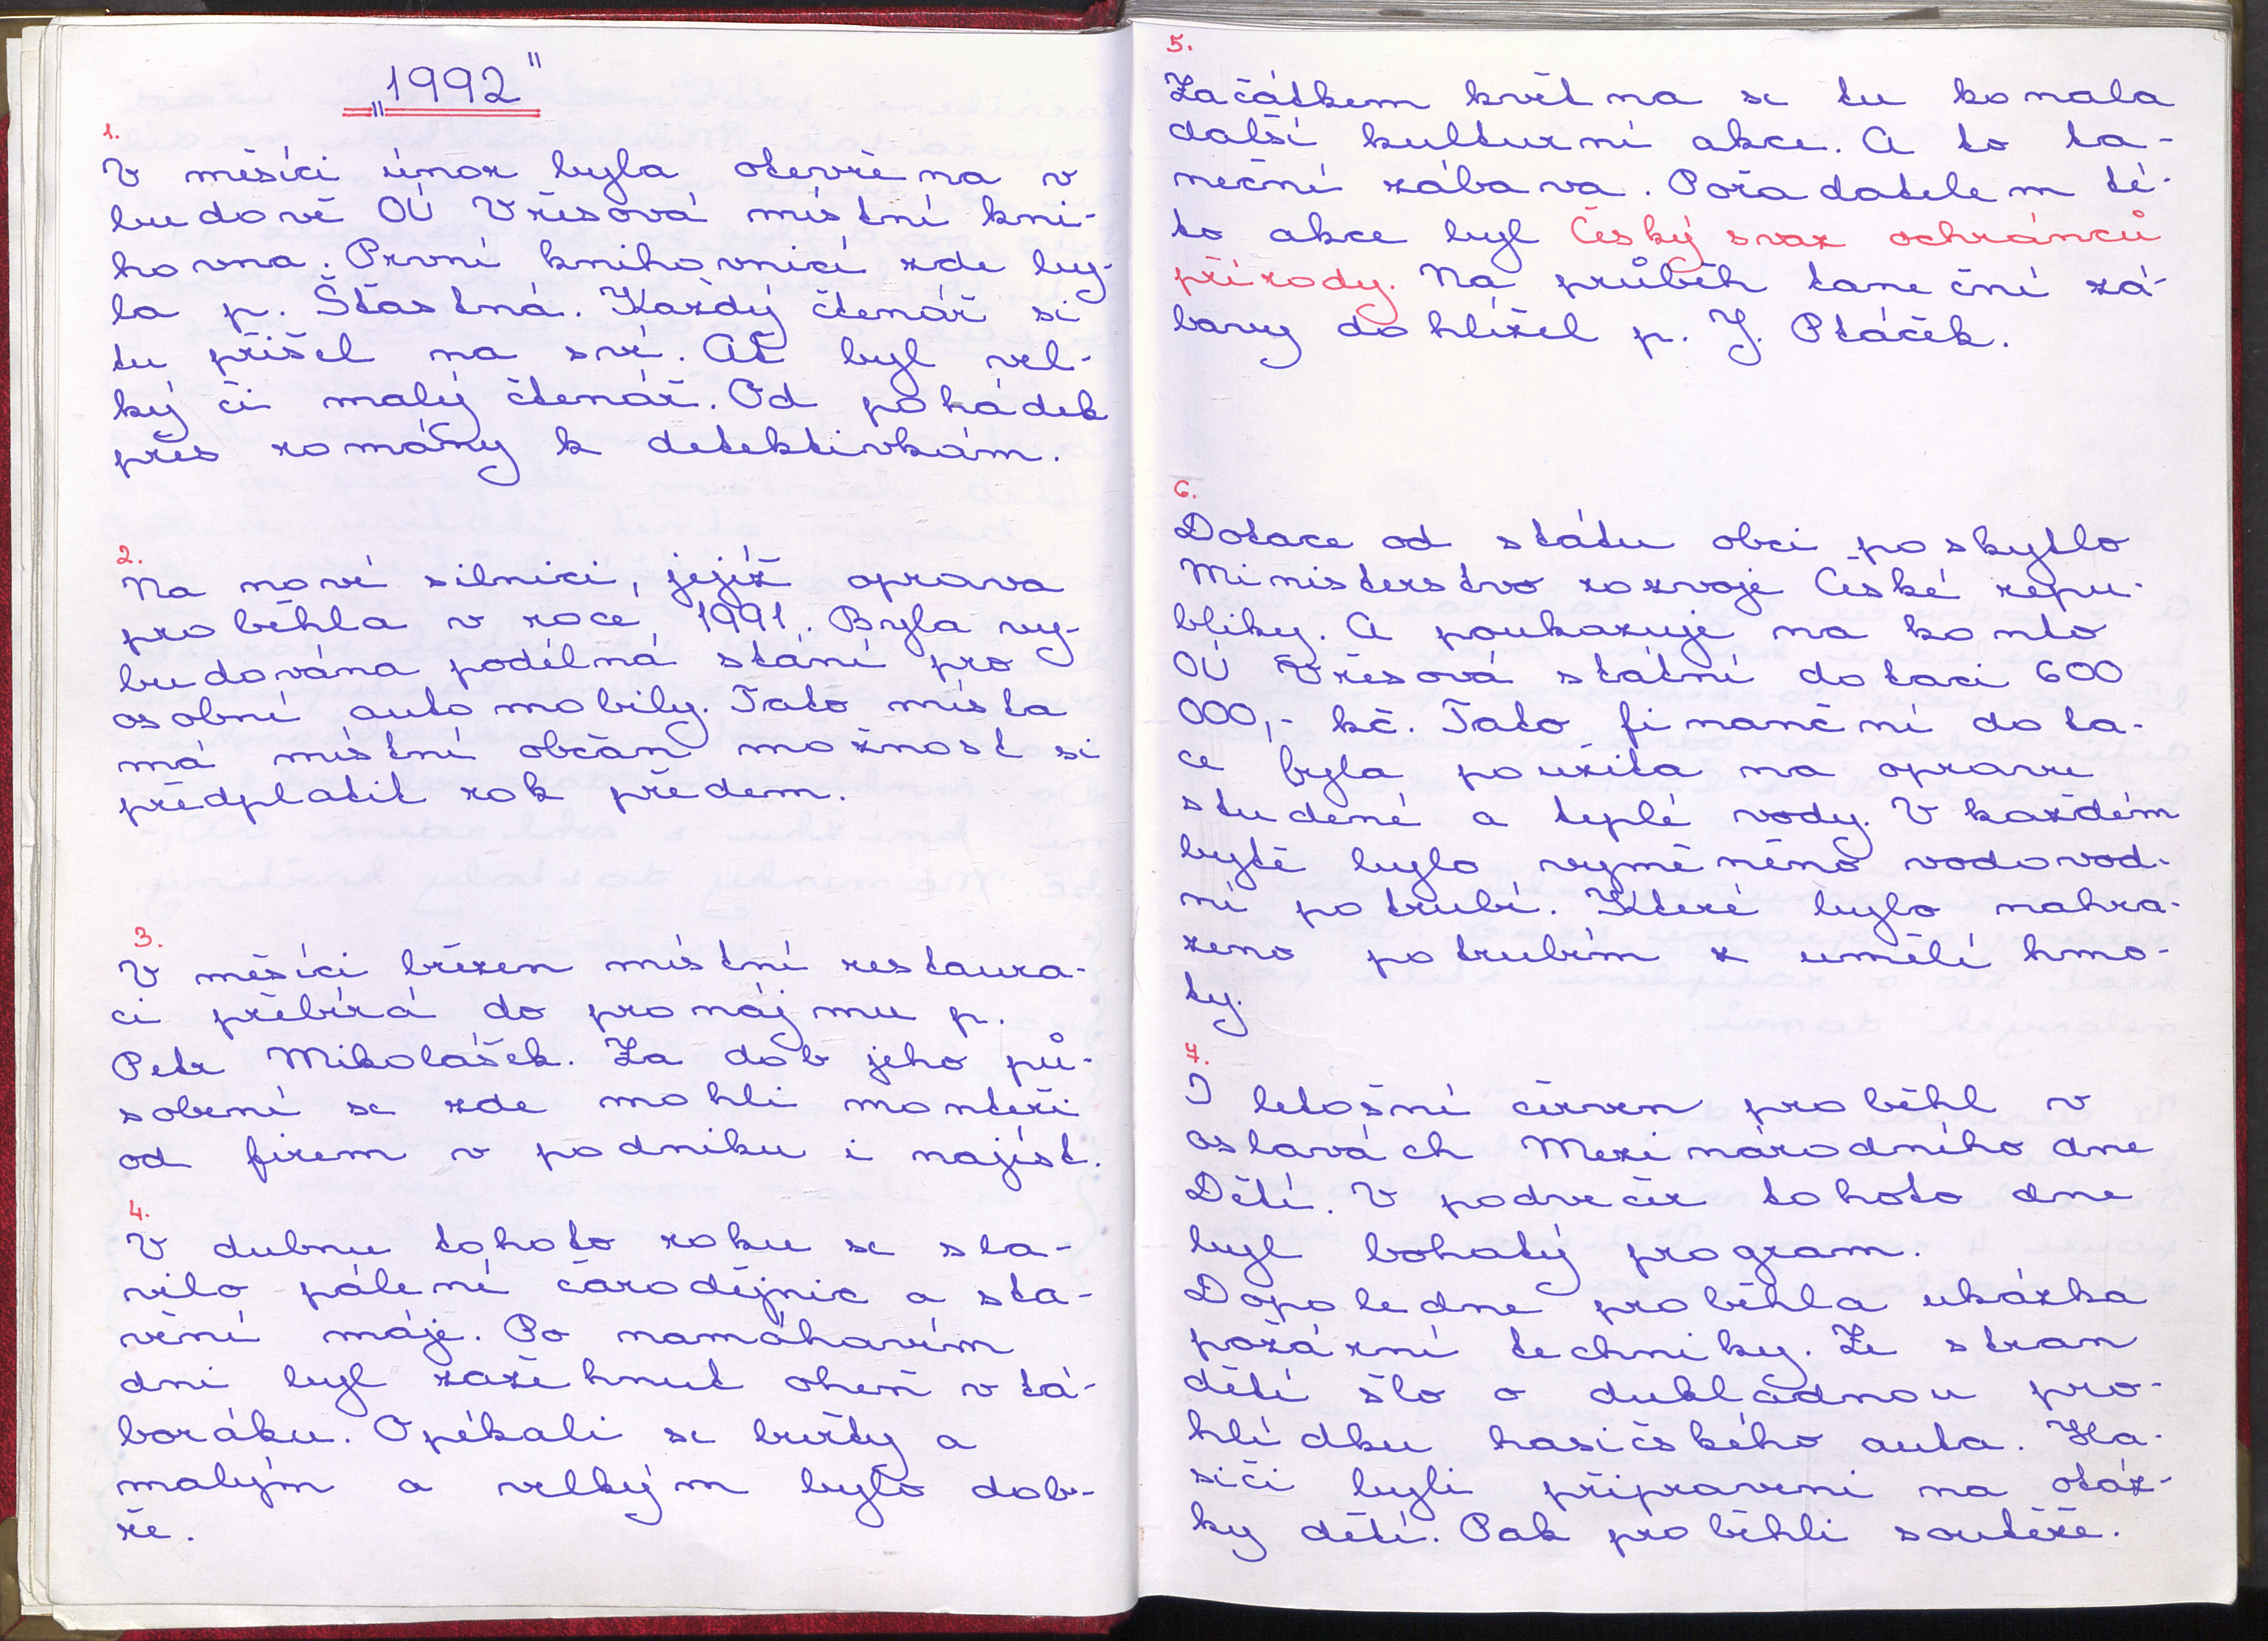 „1992"
1.
V měsíci únor byla otevřena v
budově OÚ Vřesová místní kni-
hovna. První knihovnicí zde by-
la p. Šťastná. Každý čtenář si
tu přišel na své. Ať byl vel-
ký či malý čtenář. Od pohádek
přes romány k detektivkám.
2.
Na nové silnici, jejíž oprava
proběhla v roce 1991. Byla vy-
budována podélná stání pro
osobní automobily. Tato místa
má místní občan možnost si
předplatit rok předem.
3.
V měsíci březen místní restaura-
ci přebírá do pronájmu p.
Petr Mikolášek. Za dob jeho pů-
sobení se zde mohli montéři
od firem v podniku i najíst.
4.
V dubnu tohoto roku se sla-
vilo pálení čarodějnic a sta-
vění máje. Po namáhavém
dni byl zažehnut oheň v tá-
boráku. Opékali se buřty a
malým a velkým bylo dob-
ře.
5.
Začátkem květ na se tu konala
další kulturní akce. A to ta-
neční zábava. Pořadatelem té-
to akce byl Český svaz ochránců
přírody. Na průběh taneční zá-
bavy dohlížel p. J. Ptáček.
6.
Dotace od státu obci poskytlo
Ministerstvo rozvoje České repu-
bliky. A poukazuje na konto
OÚ Vřesová státní dotaci 600
000,- kč. Tato finanční dota-
ce byla použita na opravu
studené a teplé vody. V každém
bytě bylo vyměněno vodovod-
ní potrubí. Které bylo nahra-
zeno potrubím z umělé hmo-
ty.
7.
I letošní červen proběhl v
oslavách Mezinárodního dne
Dětí. V podvečer tohoto dne
byl bohatý program.
Dopoledne proběhla ukázka
požární techniky. Ze stran
dětí šlo o dukladnou pro-
hlídku hasičského auta. Ha-
siči byli připraveni na otáz-
ky dětí. Pak proběhli soutěže.